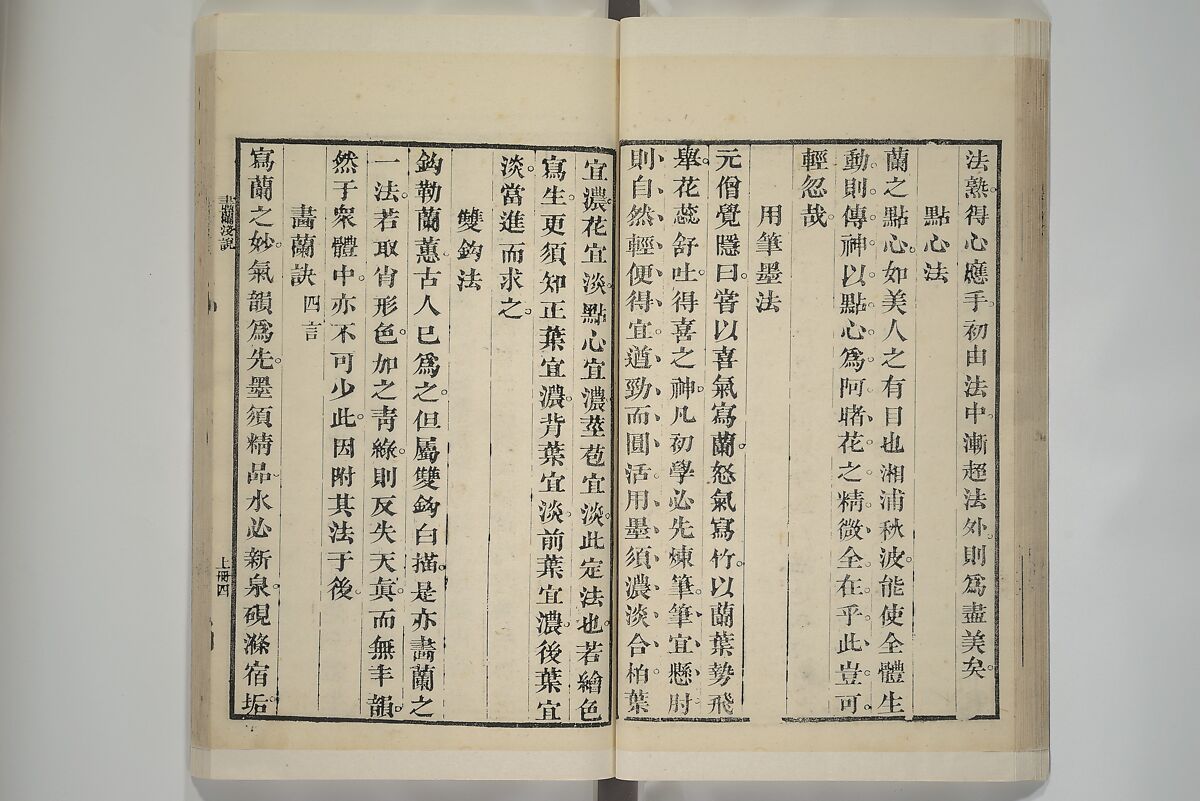 法熟得心應手。初由法中。漸超法外。則爲盡美矣。
點心法
蘭之點心。如美人之有目也。湘浦秋波。能使全體生
動。則傳神以點心爲阿睹。花之精微。全在乎此。豈可
輕忽哉。
用筆墨法
元僧覺隱曰。嘗以喜氣寫蘭。怒氣寫竹。以蘭葉勢飛
舉。花蕊舒吐。得喜之神。凡初學必先煉筆。筆宜懸肘
則自然輕便得宜。遒勁而圓活。用墨須濃淡合。柏葉
宜濃。花宜淡。點心宜濃。莖苞宜淡。此定法也。若繪色
寫生。更須知正葉宜濃。背葉宜淡。前葉宜濃。後葉宜
淡。當進而求之。
雙鈎法
鈎勒蘭蕙。古人已爲之。但屬雙鈎白描。是亦畵蘭之
一法。若取肖形色。加之青綠。則反失天眞。而無丰韻。
然于衆體中。亦不可少此。因附其法于後。
畵蘭訣 四言
寫蘭之妙。氣韻爲先。墨須精品。水必新泉。硯滌宿垢。
畵蘭淺說
上冊四